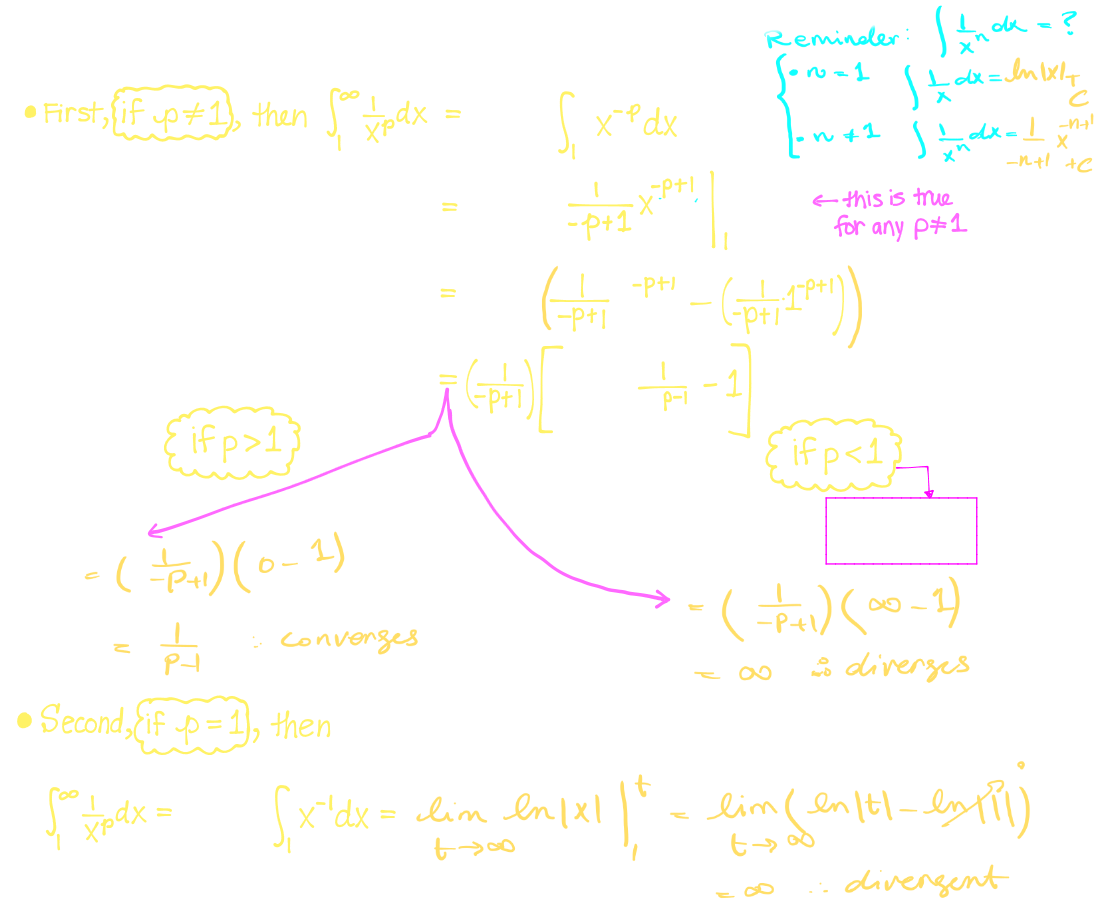 Reminder: ∫ 1/xⁿ dx = ?
• n = 1 ∫ 1/x dx = ln|x| + C
• n ≠ 1 ∫ 1/xⁿ dx = 1/(-n+1) x^(-n+1) + C
• First, if p ≠ 1, then ∫₁^∞ 1/x^p dx = ∫₁ x^(-p) dx
= 1/(-p+1) x^(-p+1) |₁
← this is true
for any p ≠ 1
= (1/(-p+1) ^(-p+1) - (1/(-p+1) 1^(-p+1)))
= (1/(-p+1)) [ 1/^(p-1) - 1 ]
if p > 1
if p < 1
= (1/(-p+1)) (0 - 1)
= 1/(p-1) ∴ converges
= (1/(-p+1)) (∞ - 1)
= ∞ ∴ diverges
• Second, if p = 1, then
∫₁^∞ 1/x^p dx = ∫₁ x^(-1) dx = lim t→∞ ln|x| |₁^t = lim t→∞ (ln|t| - ln|1|) 0
= ∞ ∴ divergent